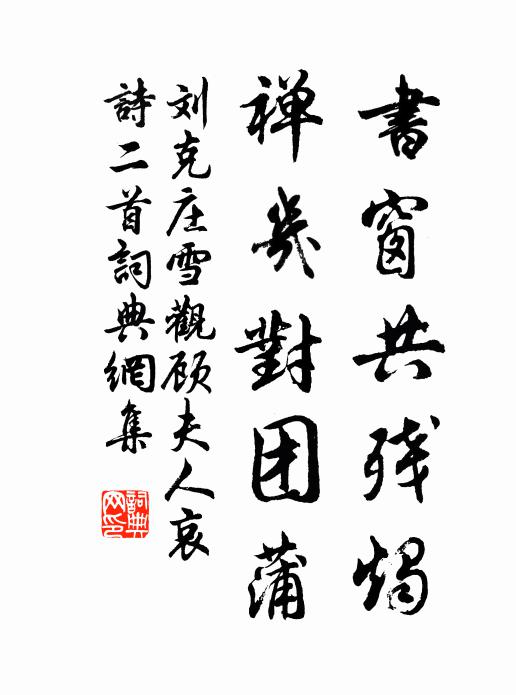 書窗共残燭
禅幾對团蒲
刘克庄雪觀顾夫人哀
詩二首詞典網集
詞典
网印